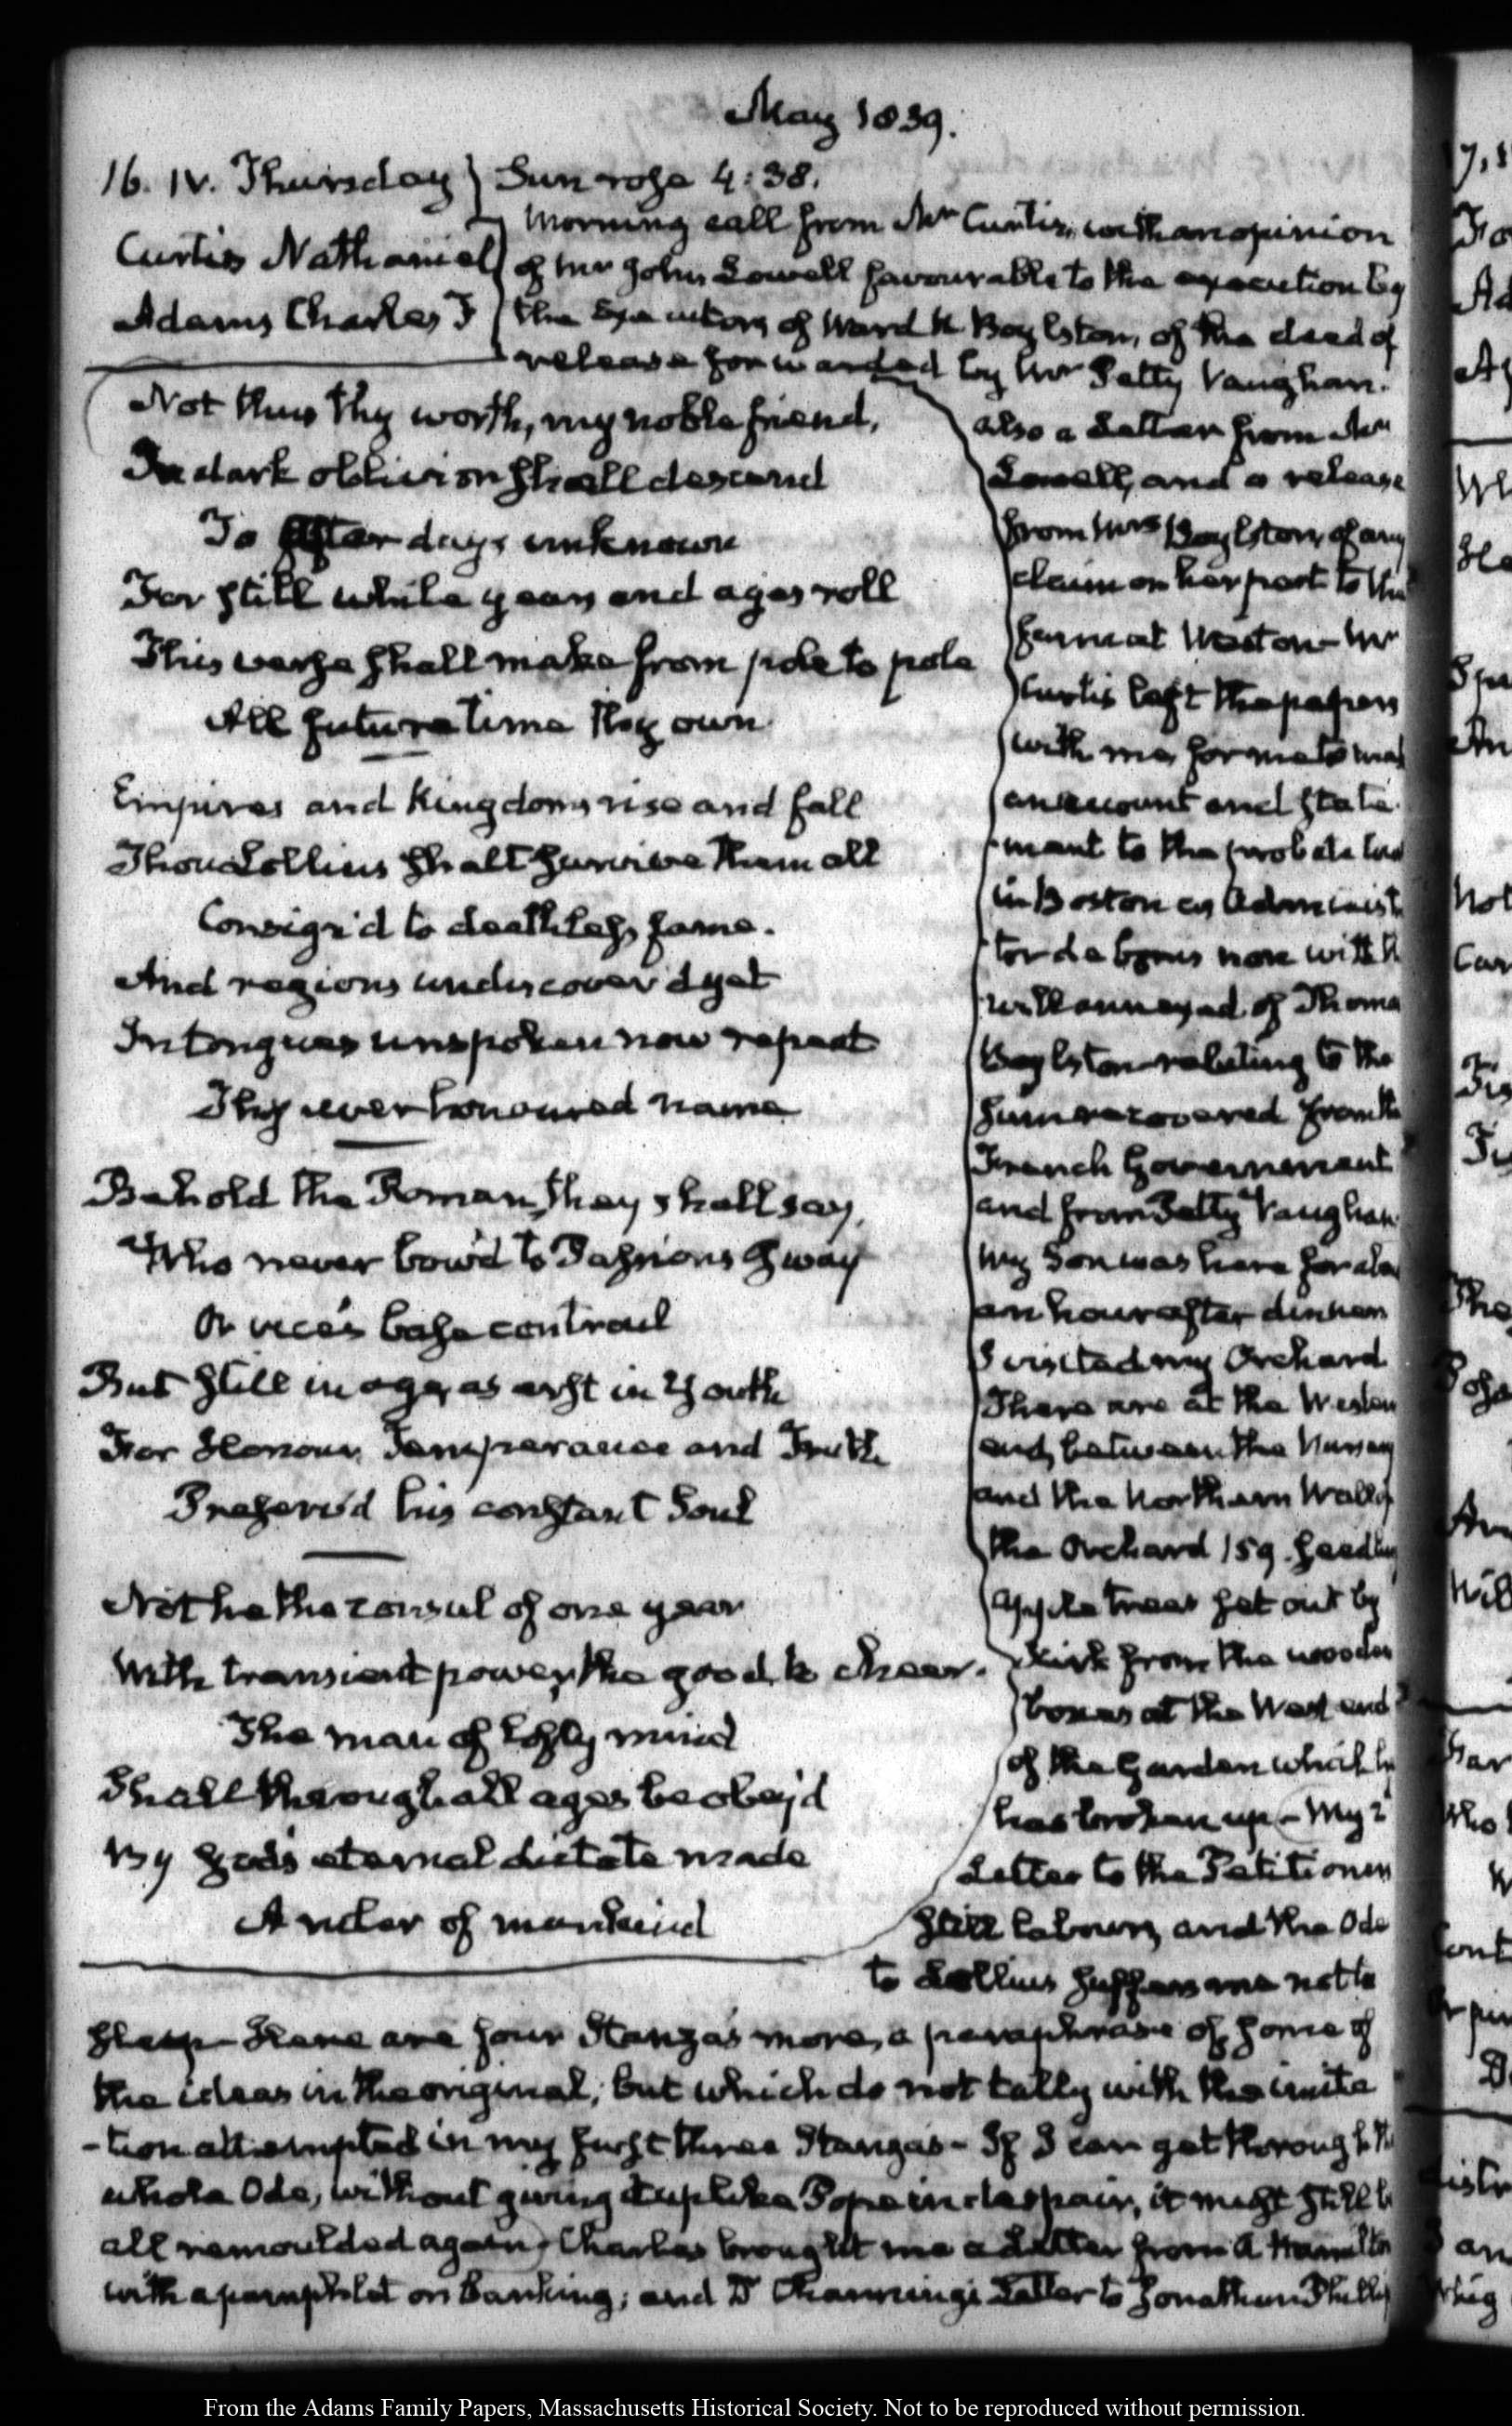 May 1839.
16. IV. Thursday
Curtis Nathaniel
Adams Charles F
Sun rose 4:38.
Morning call from Mr Curtis, with an opinion
of Mr John Lowell favourable to the execution by
the Executors of Ward N. Boylston, of the deed of
release forwarded by Mr Petty Vaughan.
Not thus thy worth, my noble friend,
In dark oblivion shall descend
To after days unknown
For still while years and ages roll
This verse shall make from pole to pole
All future time thy own
Empires and Kingdoms rise and fall
Thou Lollius shalt survive them all
Consign'd to deathless fame.
And regions undiscover'd yet
In tongues unspoken now repeat
Thy ever honoured name
Behold the Roman, they shall say,
Who never bow'd to Passion's sway
Or vice's base controul
But still in age, as erst in Youth
For Honour, Temperance and Truth
Preserv'd his constant Soul
Not he the consul of one year
With transient power, the good to cheer.
The man of lofty mind
Shall through all ages be obey'd
By god's eternal dictate made
A ruler of mankind
also a Letter from Mr
Lowell, and a release
from Mrs Boylston, of any
claim on her part to the
farm at Weston- Mr
Curtis left the papers
with me, for me to
an account and state
-ment to the probate
in Boston as Administ
tor de bonis non with
will annexed of Thoma
Boylston relating to the
sum recovered from the
French Government
and from Petty Vaughan
My Son was here for
an hour after dinner
I visited my Orchard
There are at the Western
end, between the Nursery
and the Northern Wall of
the Orchard 159. seedling
apple trees set out by
Kirk from the wooden
boxes at the West end
of the Garden which he
has broken up- My 2
Letter to the Petitioners
still labours, and the Ode
to Lollius suffers me not to
sleep- Here are four Stanzas more, a paraphrase of some of
the ideas in the original; but which do not tally with the imita
-tion attempted in my first three Stanzas- If I can get through the
whole Ode, without giving it up like Pope in despair, it might still b
all remoulded again- Charles brought me a Letter from A Hamilton
with a pamphlet on Banking; and Dr Channing's Letter to Jonathan Phillip
From the Adams Family Papers, Massachusetts Historical Society. Not to be reproduced without permission.